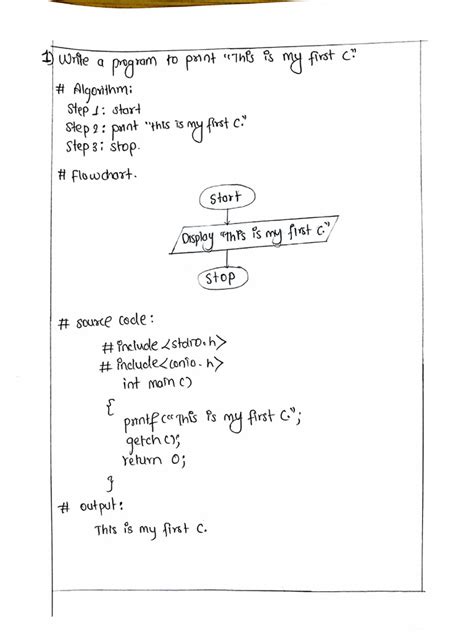 1) Write a program to print "This is my first C."
# Algorithm:
Step 1: start
Step 2: print "this is my first C."
Step 3: stop.
# Flowchart.
Start
Display "This is my first C."
Stop
# source code:
#include <stdio.h>
#include <conio.h>
int main ()
{
printf ("This is my first C.";
getch ();
return 0;
}
# output:
This is my first C.